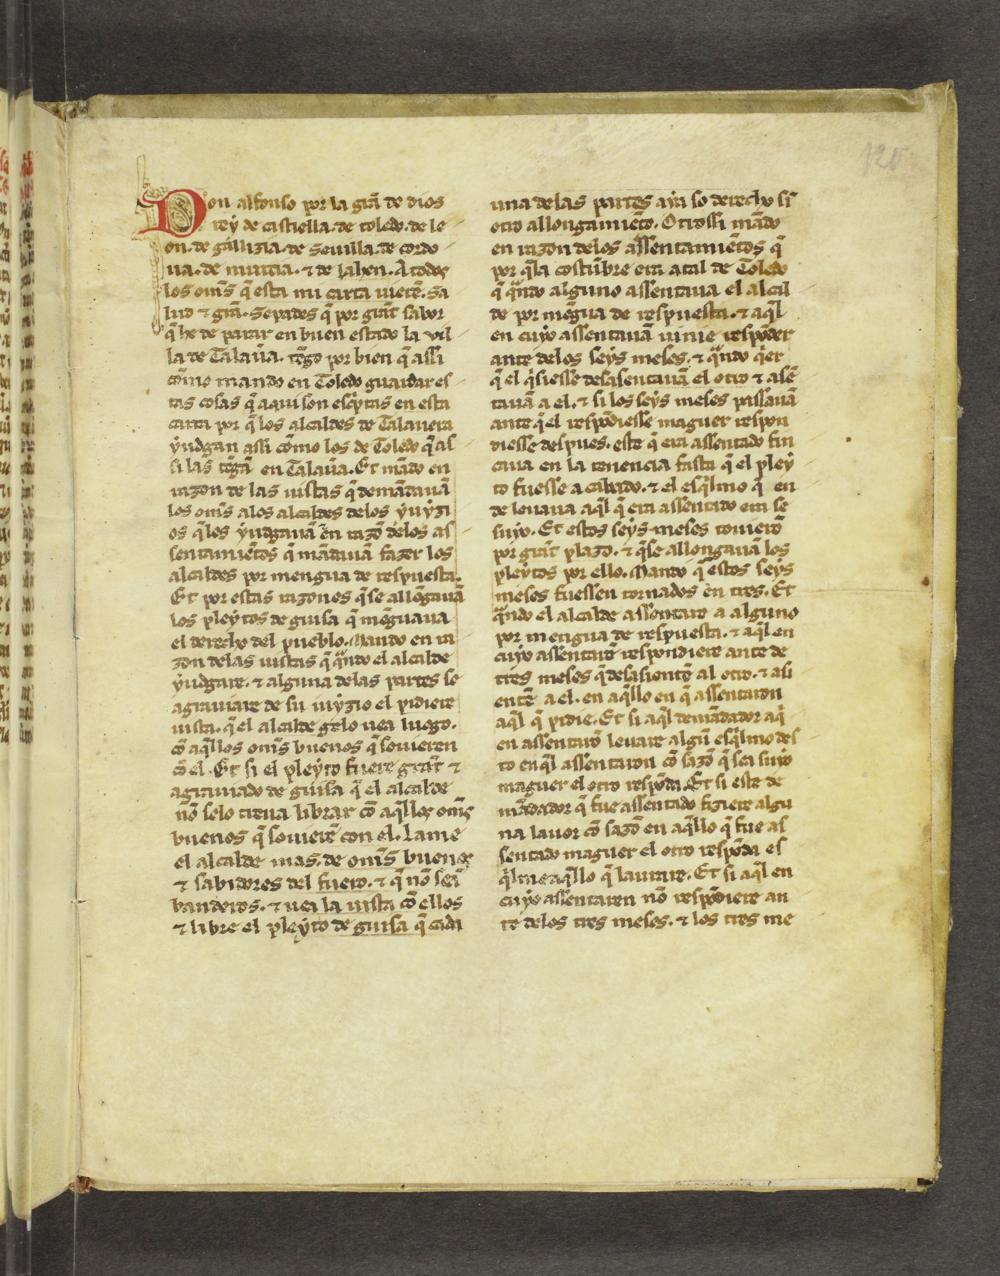 120
Don alfonso por la gr̃a de dios
rey de castiella. de toledo. de le
on. de gallizia. de Seuilla. de cordo
ua. de murcia. ⁊ de Jahen. A todos
los om̃s q̃ esta mi carta uierẽ. Sa
lud ⁊ gr̃a. Sepades q̃ por grãt sabor
q̃ he de parar en buen estado la vil
la de Talau̾a. tẽgo por bien q̃ assi
cõmo mando en Toledo guardar es
tas cosas q̃ aqui son esc̾ptas en esta
carta por q̃ los alcaldes de Talauera
yudgan assi cõmo los de Toledo q̃ as
si las tẽgã en Talau̾a. Et mãdo en
razon de las uistas q̃ demãdauã
los om̃s alos alcaldes delos yuyzi
os q̃ los yudgauã en razõ delos as
sentamiẽtos q̃ mãdauã fazer los
alcaldes por mengua de respuesta.
Et por estas razones q̃ se allõgauã
los pleytos de guisa q̃ mẽguaua
el derecho del pueblo. Mando en ra
zon delas uistas q̃ q̃ndo el alcalde
yudgare. ⁊ alguna delas partes se
agrauiare de su iuyzio el pidiere
uista. q̃ el alcalde gelo uea luego.
cõ aq̃llos om̃s buenos q̃ souieren
cõ el. Et si el pleyto fuere grãt ⁊
agrauiado de guisa q̃ el alcalde
nõ selo treua librar cõ aq̃llos om̃s
buenos q̃ souierẽ con el. Lame
el alcalde mas. de om̃s buenos
⁊ sabidores del fuero. ⁊ q̃ nõ seã
banderos. ⁊ uea la uista cõ ellos
⁊ libre el pleyto de guisa q̃ cada
una delas partes aya so derecho sĩ
otro allongamiẽto. Otrossi mãdo
en razon delos assentamiẽtos q̃
por q̃ la costũbre era atal de Toledo
q̃ q̃ndo alguno assentaua el alcal
de por mẽgua de respuesta. ⁊ aq̃l
en cuyo assentauã uinie respõder
ante delos seys meses. ⁊ q̃ndo q̃er
q̃ el q̃siesse desasentauã el otro ⁊ asẽ
tauã a el. ⁊ si los seys meses passauã
ante q̃ el respõdiesse maguer respon
diesse despues. este q̃ era assentado fin
caua en la tenencia fasta q̃ el pley
to fuesse acabado. ⁊ el esq̃lmo q̃ en
de leuaua aq̃l q̃ era assentado era se
suyo. Et estos seys meses touierõ
por grãt plazo. ⁊ q̃ se allongauã los
pleytos por ello. Mando q̃ estos seys
meses fuessen tornados en tres. Et
q̃ndo el alcalde assentare a alguno
por mengua de respuesta. ⁊ aq̃l en
cuyo assentarẽ respondiere ante de
tres meses q̃ desasientẽ al otro. ⁊ asi
entẽ a el. en aq̃llo en q̃ assentaron
aq̃l q̃ pidie. Et si aq̃l demãdador aq̃
en assentarõ leuare algũ esq̃lmo des
to en q̃l assentaron cõ sazõ q̃ sea suyo
maguer el otro respõda. Et si este de
mãdador q̃ fue assentado fiziere algu
na lauor cõ sazõ en aq̃llo q̃ fue as
sentado maguer el otro respõda es
q̃lme aq̃llo q̃ laurare. Et si aq̃l en
cuyo assentaren nõ respõdiere an
te delos tres meses. ⁊ los tres me